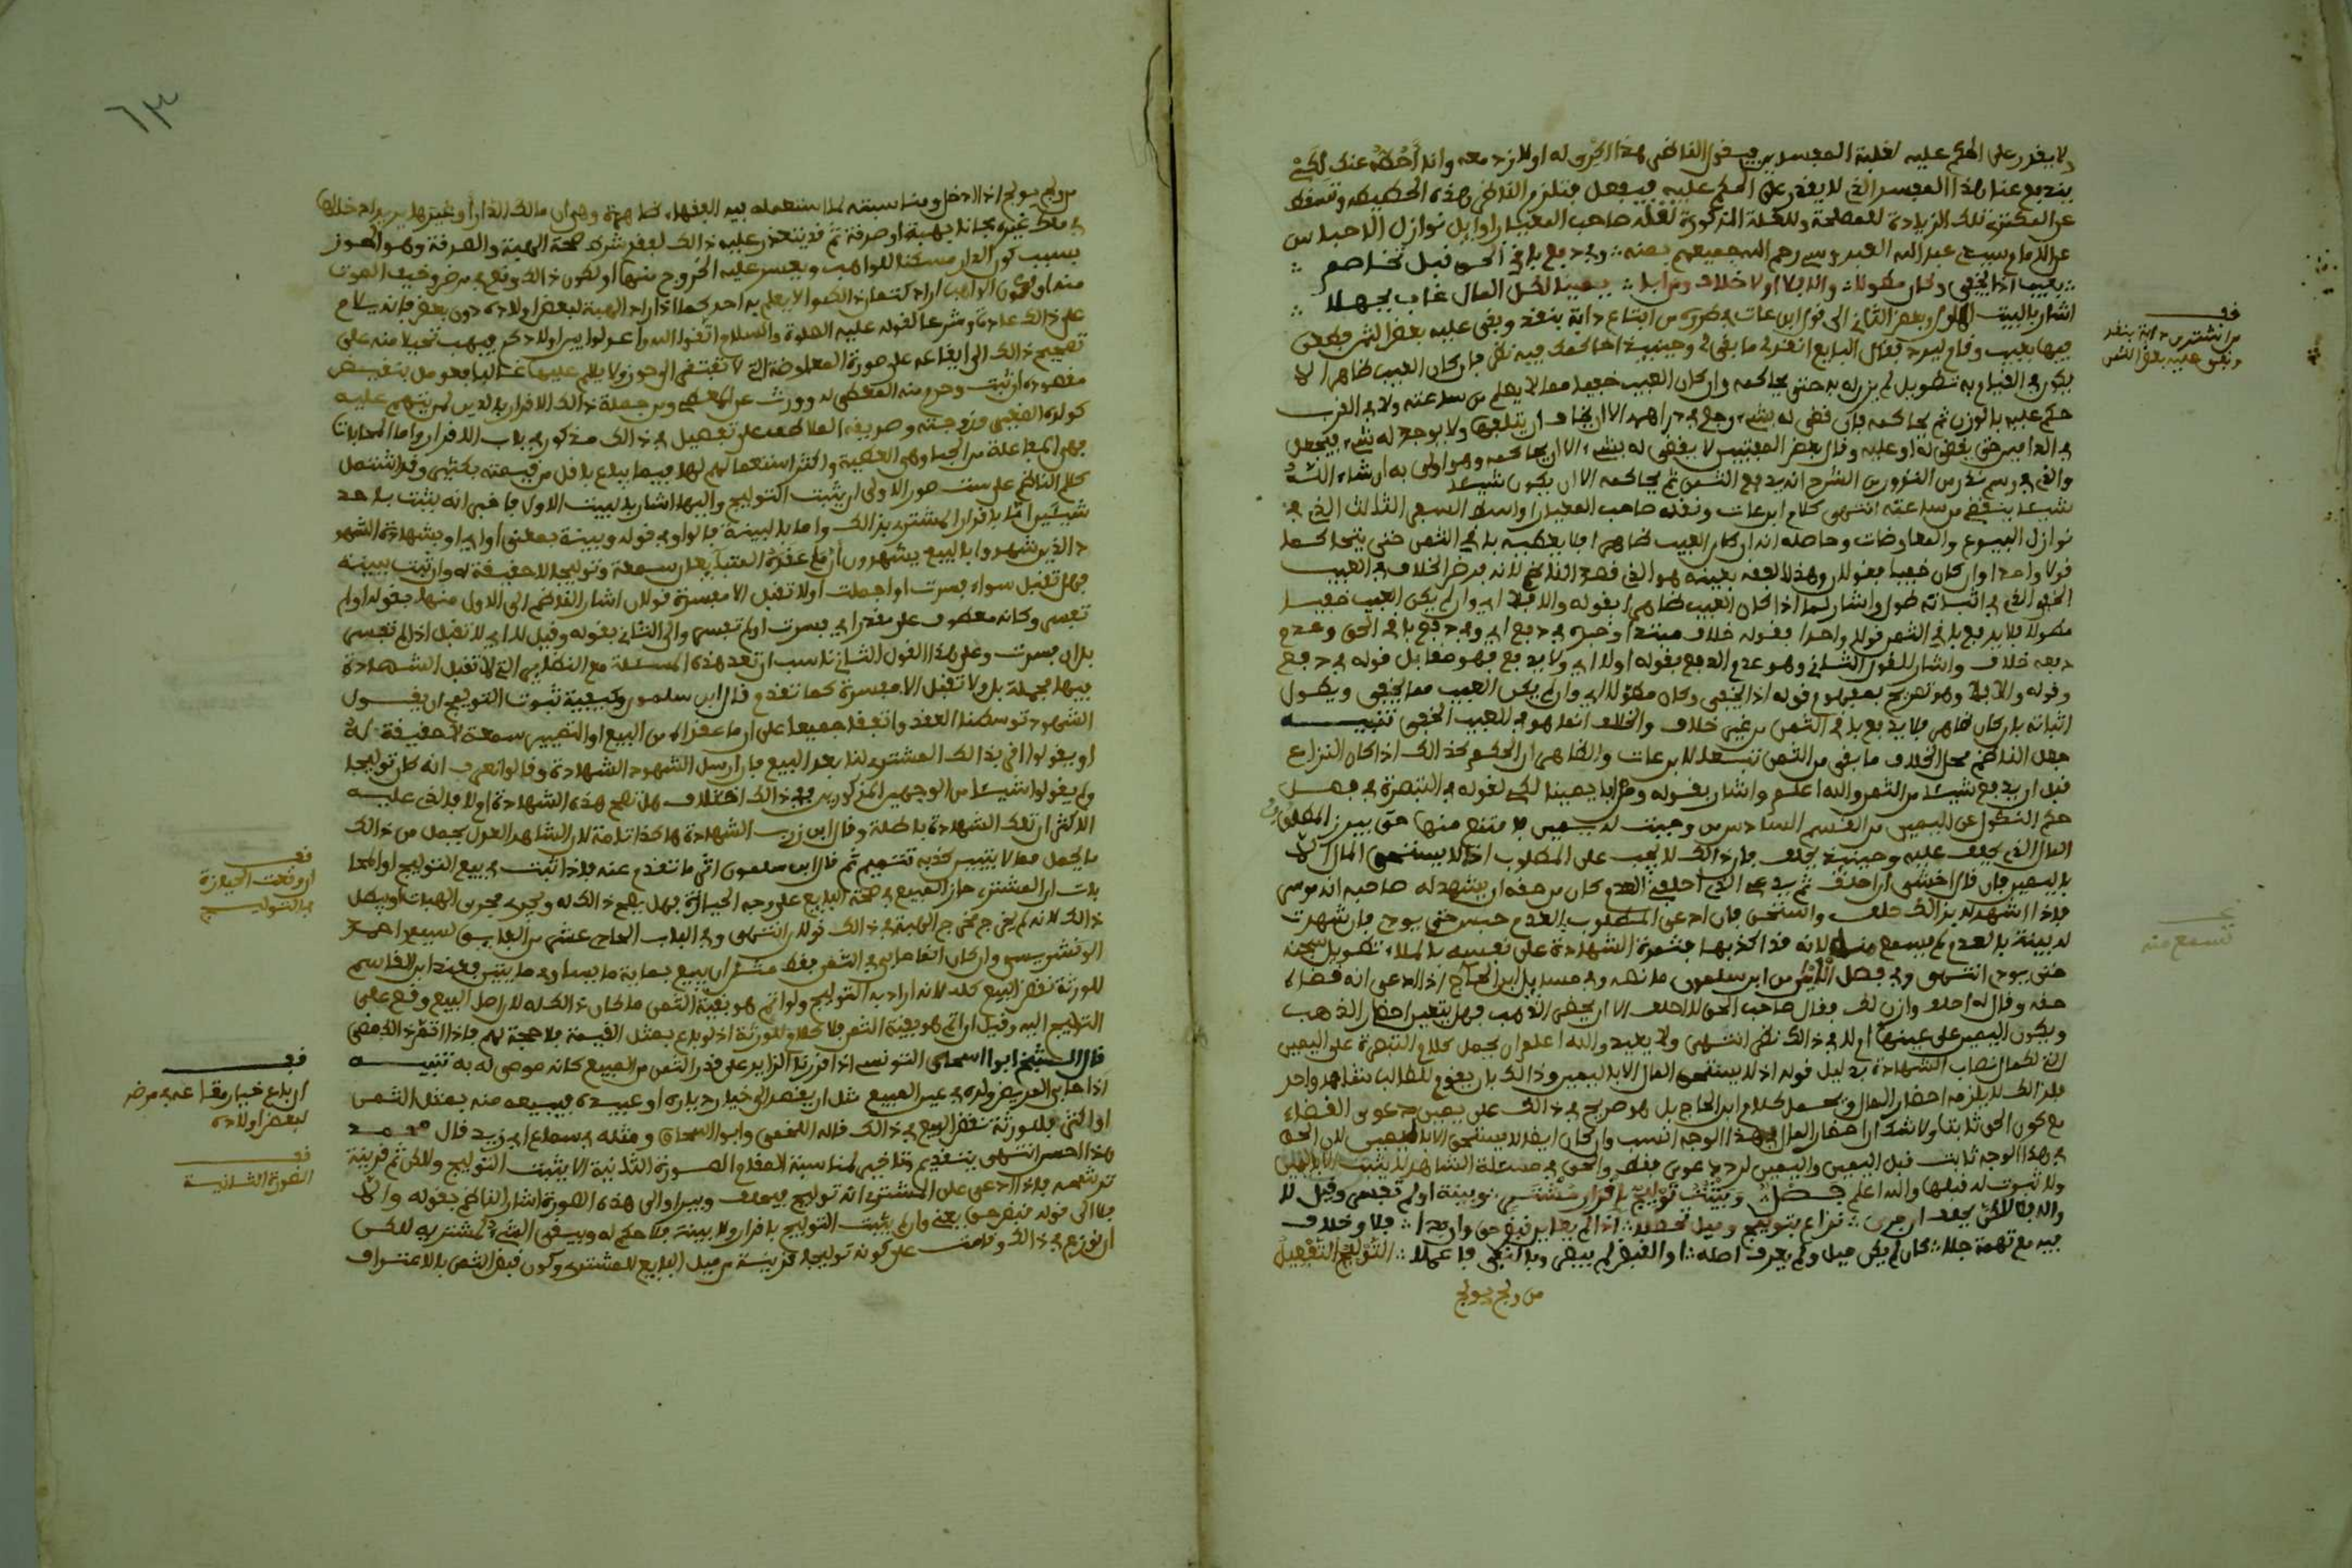 ولا يقدر على الحكم عليه لغلبة المفسدين فيقول القاضي هذا الكرى له اولا زد معه وانا احكم عنك لكي
يندفع عنا هذا المفسد الذي لا يقدر على الحكم عليه فيفعل
عن المكترى تلك الزيادة للمصلحة وللعلة المذكورة نقله صاحب المعيار اوايل نوازل الاحباس
عن الامام سيدي عبد الله العبدوسي رحم الله جميعهم بمنه وفي دفع باقي الحق قبل تخاصم
بعيب اذا يخفى وكان مطولا والا فلا اولا خلاف
اشار بالبيت الاول وبعض الثاني الى قول ابن عات في طرره من ابتاع دابة بنقد وبقي عليه بعض الثمن فطعن
فيها بعيب وقام ليرد فقال البايع انقدني ما بقي لي وحينئذ احاكمك فيه نظر فان كان العيب ظاهرا لا
يكون في القيام به تطويل لم يزد له به حتى يحاكمه وان كان العيب خفيا مما لا يعلم من ساعته ولا في القرب
حكم عليه بالوزن ثم يحاكمه فان قضى له بشيء رجع في دراهمه الا ان يخاف ان يتلفها ولا يوجد له شيء فيجعل
حتى يقضى له او عليه وقال بعض المفتيين لا يقضى له بشيء الا ان يحاكمه وهو اولى به ان شاء الله
والذي في رسم نذر من النذور من الشرح انه يدفع الثمن ثم يحاكمه الا ان يكون شيئا
شيئا ينقضي من ساعته انتهى كلام ابن عات ونقله صاحب المعيار اواسط السفر الثالث الذي في
نوازل البيوع والمعاوضات وحاصله انه ان كان العيب ظاهرا فلا يطلبه باقي الثمن حتى يتحاكما
قولا واحدا وان كان خفيا فقولان وهذا الفقه بعينه هو الذي قصد الناظم لانه فرض الخلاف في العيب
الخفي الذي في اثباته طول واشار لما اذا كان العيب ظاهرا بقوله والا فلا اي وان لم يكن العيب خفيا
مطولا فلا يدفع باقي الثمن قولا واحدا فقوله خلاف مبتدا وخبره في دفع اي وفي دفع باقي الحق وعدم
دفعه خلاف واشار للقول الثاني وهو عدم الدفع بقوله اولا اي ولا يدفع فهو مقابل قوله في دفع
وقوله والا فلا وهو تصريح بمفهوم قوله اذا يخفى وكان مطولا اي وان لم يكن العيب مما يخفى ويطول
اثباته بل كان ظاهرا فلا يدفع باقي الثمن من غير خلاف والخلاف انما هو في العيب الخفي تنبيه
جعل الناظم محل الخلاف ما بقي من الثمن تبعا لابن عات والظاهر ان الحكم كذلك اذا كان النزاع
قبل ان يدفع شيئا من الثمن والله اعلم واشار بقوله يمينا لكي لقوله في التبصرة في فصل
حكم النكول عن اليمين من القسم السادس من وجبت له يمين فامتنع منها حتى
المال الذي يحلف عليه وحينئذ يحلف فان ذلك لا يجب على المطلوب اذ لا يستحق المال الا
باليمين فان قال اخشى ان احلف ثم يدعي الذي احلف العدم كان من حقه ان يشهد له صاحبه انه موسر
فاذا شهد له بذلك حلف واستحق فان ادعى المطلوب العدم حبس حتى يودي فان شهدت
له بينة بالعدم لم يسمع منه لانه قد اكذبها بثمرة الشهادة على نفسه بالملاء تطويل سجنه
حتى يودي انتهى وفي فصل اليمين من ابن سلمون ما نصه وفي مسايل ابن الحاج اذا ادعى انه قضاه
حقه وقال له احلف وازن لك فقال صاحب الحق لا احلف الا ان يحضر الذهب فهل يتعين احضار الذهب
ويكون اليمين على عينها ام لا في ذلك نظر انتهى ولا يبعد والله اعلم ان يحمل كلام التبصرة على اليمين
التي لكمال نصاب الشهادة بدليل قوله اذ لا يستحق المال الا باليمين وذلك بان يقوم للطالب شاهد واحد
فلذلك لا يلزمه احضار المال ويحمل كلام ابن الحاج بل هو صريح في ذلك على يمين دعوى القضاء
مع كون الحق ثابتا ولا شك ان احضار المال في هذا الوجه انسب وان كان ايضا لا يستحق الا باليمين لان الحق
في هذا الوجه ثابت قبل اليمين واليمين لرد دعوى فقط والحق في مسئلة الشاهد لا يثبت الا باليمين
ولا ثبوت له قبلها والله اعلم فصل ويثبت توليج باقرار مشتر وبينة او لم تفسر وقيل لا
والا فلا لكن يحلف ان جرى نزاع بتوليج وميل تحصلا اذا لم يعاين قبض حق وان بدا فلا وخلاف
فيه مع تهمة جلا كان لم يكن ميل ولم يعرف اصله او القبض لم يبقى
من ولج يولج
فف
من اشترى دابة بنقد
وبقي عليه بعض الثمن
تسمع منه
٦٣
من ولج يولج اذا ادخل ومناسبته لما استعمله فيه الفقهاء ظاهرة وهي ان مالك الدار او غيرها يريد ادخالها
في ملك غيره مجانا بهبة او صدقة ثم قد يتعذر عليه ذلك لفقد شرط صحة الهبة والصدقة وهو الحوز
بسبب كون الدار مسكنا للواهب ويعسر عليه الخروج منها او لكون ذلك وقع في مرض وخيف الموت
منه او لكون الواهب اراد كتمان ذلك ولا يعلم به احد كما اذا اراد الهبة لبعض اولاده دون بعض فانه يلام
على ذلك عادة وشرعا لقوله عليه الصلاة والسلام اتقوا الله واعدلوا بين اولادكم فيهب تحيلا منه على
تصحيح ذلك الى ايقاعه على صورة المعاوضة التي لا تفتقر الى حوز ولا يلام عليها غالبا فعومل بنقيض
مقصوده ان ثبت وحرم منه المعطى له وورث عن المعطي ومن جملة ذلك الاقرار بالدين لمن يتهم عليه
كولده الصغير وزوجته وصديقه الملاطف على تفصيل في ذلك مذكور في باب الاقرار واما المحابات
فهي المفاعلة من الحبا وهي العطية واكثر استعمالهم لها فيما يباع باقل من قيمته بكثير وقد اشتمل
كلام الناظم على ست صور الاولى ان يثبت التوليج واليها اشار بالبيت الاول فاخبر انه يثبت باحد
شيئين اما باقرار المشتري بذلك واما بالبينة فالواو في قوله وبينة بمعنى او اي او بشهادة الشهود
الذين شهدوا بالبيع يشهدون ان ما عقده المتبايعان سمعة وتوليجا لا حقيقة له وان ثبت ببينة
فهل تقبل سواء فسرت او اجملت اولا تقبل الا مفسرة قولان اشار الناظم الى الاول منهما بقوله او لم
تفسر وكانه معطوف على مقدر اي فسرت او لم تفسر والى الثاني بقوله وقيل لا اي لا تقبل اذا لم تفسر
بل ان فسرت وعلى هذا القول الثاني ناسب ان تعد هذه المسئلة مع النظاير التي لا تقبل الشهادة
فيها مجملة بل ولا تقبل الا مفسرة كما تقدم قال ابن سلمون وكيفية ثبوت التوليج ان يقول
الشهود توسطنا العقد واتفقا جميعا على ان ما عقداه من البيع او التصيير سمعة لا حقيقة له
او يقولوا اقر بذلك المشتري لنا بعد البيع فان ارسل الشهود الشهادة وقالوا نعرف انه كان توليجا
ولم يقولوا شيئا من الوجهين المذكورين ففي ذلك اختلاف هل تصح هذه الشهادة ام لا والذي عليه
الاكثر ان تلك الشهادة باطلة وقال ابن زرب الشهادة هكذا تامة لان الشاهد العدل يحمل من ذلك
ما يحمل مما لا يتبين كذبه تتميم ثم قال ابن سلمون اثر ما تقدم عنه فاذا ثبت في بيع التوليج او المحا
بات ان المشتري حاز المبيع في صحة البايع على وجه الحيازة فهل يصح ذلك له ويجري مجرى الهبات او يبطل
ذلك لانه لم يخرج مخرج الهبة في ذلك قولان انتهى وفي الباب الحادي عشر من الفايق لسيدي احمد
الونشريسي وان كان انما حابى في الثمن فقط مثل ان يبيع بماية ما يساوي مايتين فعند ابن القاسم
للورثة نقض البيع كله لانه اراد به التوليج ولو اتم هو بقية الثمن ما كان ذلك له لان اصل البيع وقع على
التوليج اليه وقيل ان اتم هو بقية الثمن فلا كلام للورثة اذ لو باع بمثل القيمة فلا حجة لهم فاذا اتم ذلك مضى
قال الشيخ ابو اسحاق التونسي اذا قررنا الزايد على قدر الثمن من المبيع كانه موصى له به تنبيه
اذا حابى المريض ولده في عين المبيع مثل ان يقصد الى خيار دياره او عبيده فيبيعه منه بمثل الثمن
او اكثر فللورثة نقض البيع في ذلك قاله اللخمي وابو اسحاق ومثله في سماع ابي زيد قال محمد
وهذا احسن انتهى بتقديم وتاخير لمناسبة المقام الصورة الثانية الا يثبت التوليج ولا كن ثم قرينة
تدل فاذا ادعى على المشتري انه توليج فيحلف ويبرا والى هذه الصورة اشار الناظم بقوله والا
فلا الى قوله قبض حق يعني وان لم يثبت التوليج باقرار ولا بينة فلا حكم له ويبقى الشيء لمشتريه لكن
ان نوزع في ذلك وقامت على كونه توليجا قرينة من ميل البايع للمشتري وكون قبض الثمن بالاعتراف
فف
ان وقعت الحيازة
في التوليج
فف
ان باع خيار متاعه في مرضه
لبعض اولاده
فف
الصورة الثانية